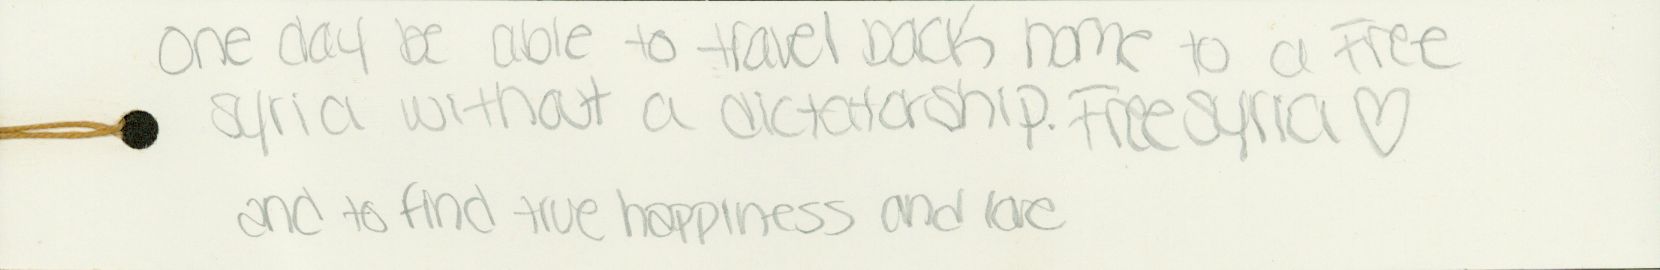 one day be able to travel back home to a Free
Syria without a dictatorship. Free Syria ♡
and to find true happiness and love